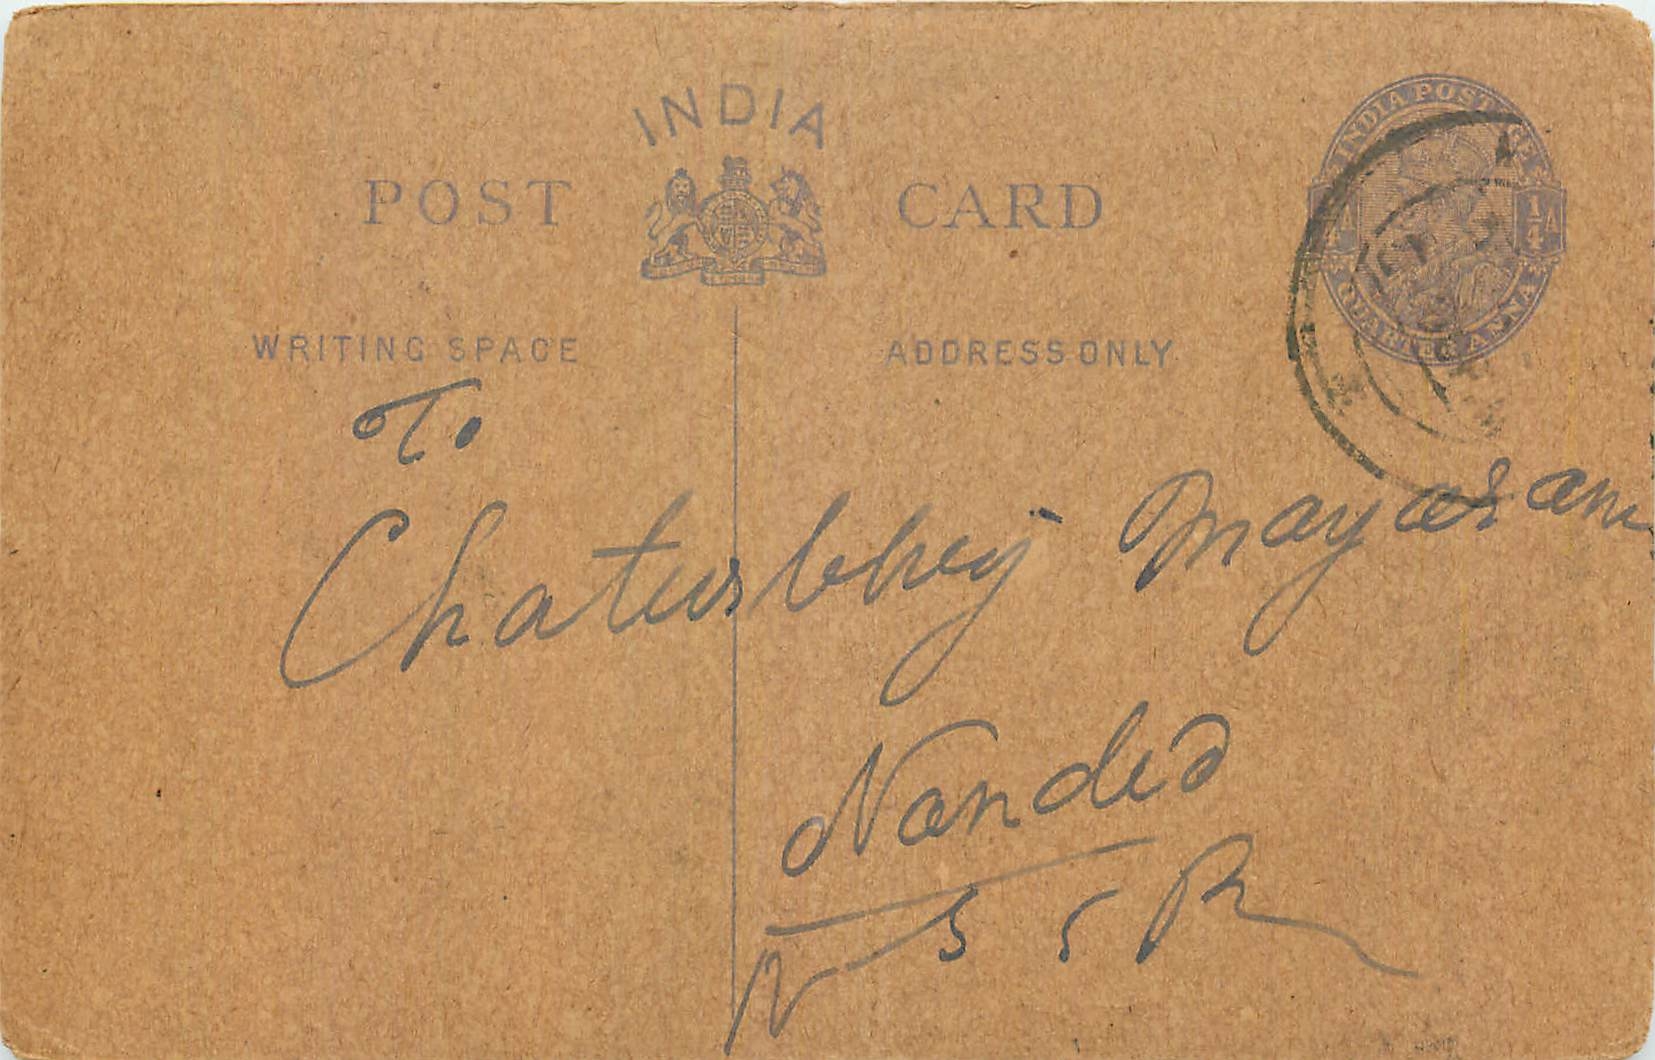 INDIA
POST CARD
INDIA POSTAGE
¼A ¼A
QUARTER ANNA
WRITING SPACE
ADDRESS ONLY
To.
Chatursbhuj Mayaram
Nanded
N S S R